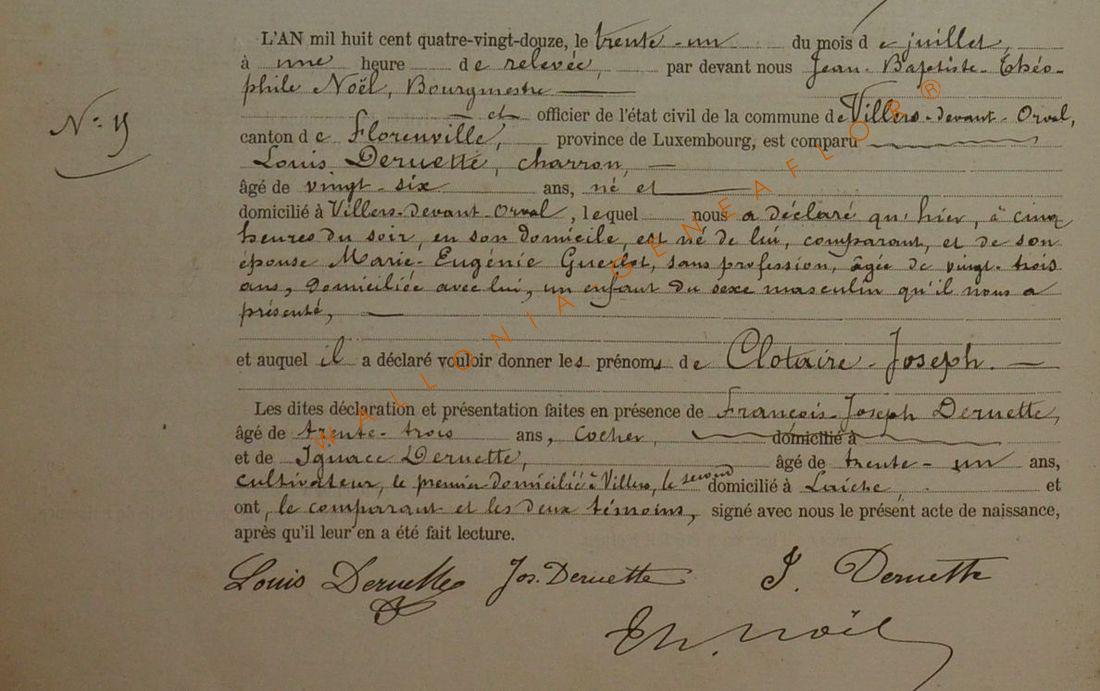 L'AN mil huit cent quatre-vingt-douze, le trente-un du mois de juillet,
à une heure de relevée, par devant nous Jean-Baptiste-Théo-
phile Noël, Bourgmestre
et officier de l'état civil de la commune de Villers-devant-Orval,
N°
canton de Florenville, province de Luxembourg, est comparu
Louis Deruette, charron,
âgé de vingt-six ans, né et
domicilié à Villers-devant-Orval, lequel nous a déclaré qu'hier, à cinq
heures du soir, en son domicile, est né de lui, comparant, et de son
épouse Marie-Eugénie Guerlot, sans profession, âgée de vingt-trois
ans, domiciliée avec lui, un enfant du sexe masculin qu'il nous a
présenté,
et auquel il a déclaré vouloir donner les prénoms de Clotaire-Joseph.
Les dites déclaration et présentation faites en présence de François-Joseph Deruette,
âgé de trente-trois ans, cocher, domicilié à
et de Ignace Deruette, âgé de trente-un ans,
cultivateur, le premier domicilié à Villers, le second domicilié à Laiche, et
ont, le comparant et les deux témoins, signé avec nous le présent acte de naissance,
après qu'il leur en a été fait lecture.
Louis Deruette Jos. Deruette J. Deruette
Th. Noël
WALLONIA GENEAFLOR ®